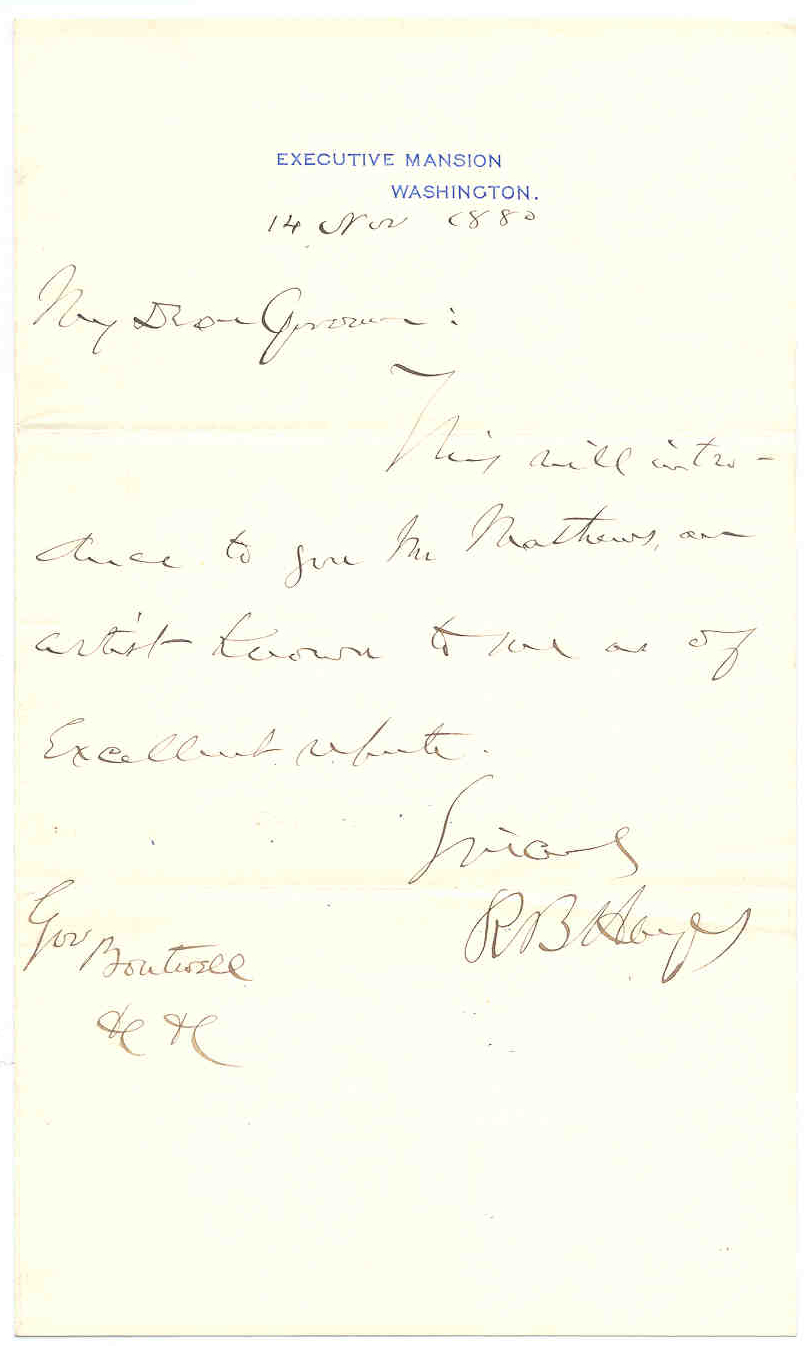 EXECUTIVE MANSION
WASHINGTON.
14 Nov 1880
My Dear Governor:
This will intro-
duce to you Mr Mathews, an
artist known to me as of
Excellent repute.
Sincerely
R B Hayes
Gov Boutwell
&c &c